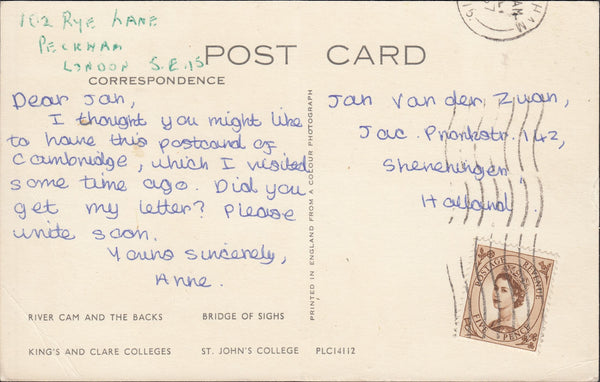 102 Rye Lane
Peckham
London S.E.15
POST CARD
CORRESPONDENCE
Dear Jan,
I thought you might like
to have this postcard of
Cambridge, which I visited
some time ago. Did you
get my letter? Please
write soon.
Yours sincerely,
Anne.
RIVER CAM AND THE BACKS
BRIDGE OF SIGHS
KING'S AND CLARE COLLEGES
ST. JOHN'S COLLEGE
PLC14112
PRINTED IN ENGLAND FROM A COLOUR PHOTOGRAPH
Jan van der Zwan,
Jac. Pronkstr. 142,
Sheneningen
Holland
HAM
S.E.15.
POSTAGE REVENUE
FIVE PENCE